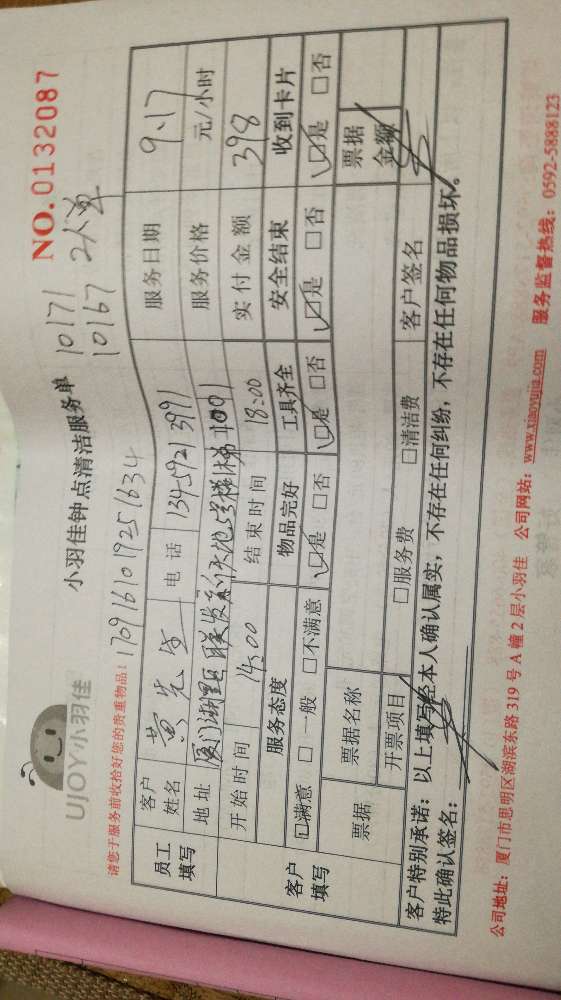 UJOY小羽佳
小羽佳钟点清洁服务单
NO.0132087
10171
10167 2人
请您于服务前收拾好您的贵重物品!
1709161019251634
员工填写
客户姓名 黄先生 电话 134-5921 3991 服务日期 9.17
地址 厦门湖里区联发 1001 服务价格 元/小时
开始时间 14:00 结束时间 18:00 实付金额 398
客户填写
服务态度 物品完好 工具齐全 安全结束 收到卡片
☑满意 □一般 □不满意 ☑是 □否 ☑是 □否 ☑是 □否 ☑是 □否
票据 票据名称 票据金额
开票项目 □服务费 □清洁费 客户签名
客户特别承诺:以上填写经本人确认属实,不存在任何纠纷,不存在任何物品损坏。
特此确认签名:
公司地址:厦门市思明区湖滨东路 319 号 A 幢 2 层小羽佳 公司网站:www.xiaoyujia.com 服务监督热线:0592-5888123